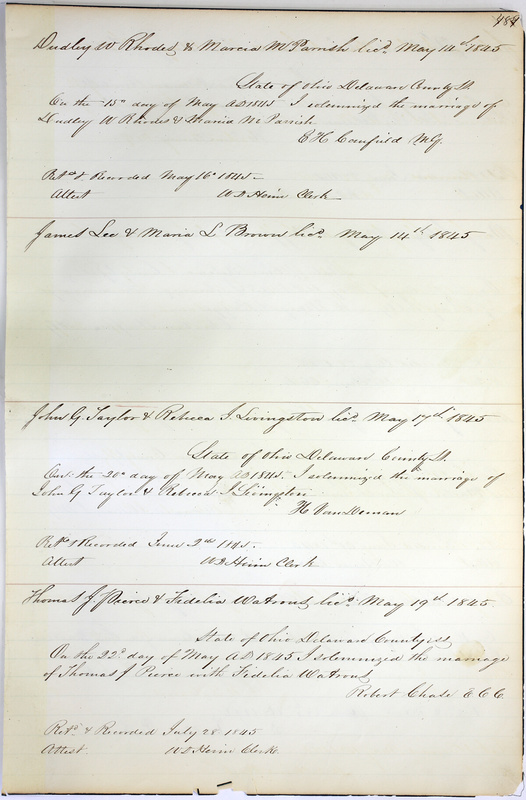 484
Dudley W Rhodes & Marcia M Parrish licd. May 14th 1845
State of Ohio Delaware County Ss.
On the 15th day of May AD 1845 I solemnized the marriage of
Dudley W Rhodes & Marcia M Parrish
E H Canfield M.G.
Retd. & Recorded May 16th 1845.
Attest W D Heim Clerk
James Lee & Maria L Brown licd. May 14th 1845
John G Taylor & Rebecca J. Livingston licd. May 17th 1845
State of Ohio Delaware County Ss.
On the 20th day of May AD 1845. I solemnized the marriage of
John G Taylor & Rebecca J Livingston
H Van Deman
Retd. & Recorded June 2nd 1845.
Attest W D Heim Clerk
Thomas J. Pierce & Fidelia Watrous licd. May 19th 1845.
State of Ohio Delaware County ss
On the 22d. day of May A D 1845 I solemnized the marriage
of Thomas J Pierce with Fidelia Watrous
Robert Chase E C C.
Retd. & Recorded July 28 1845
Attest. W D Heim Clerk.